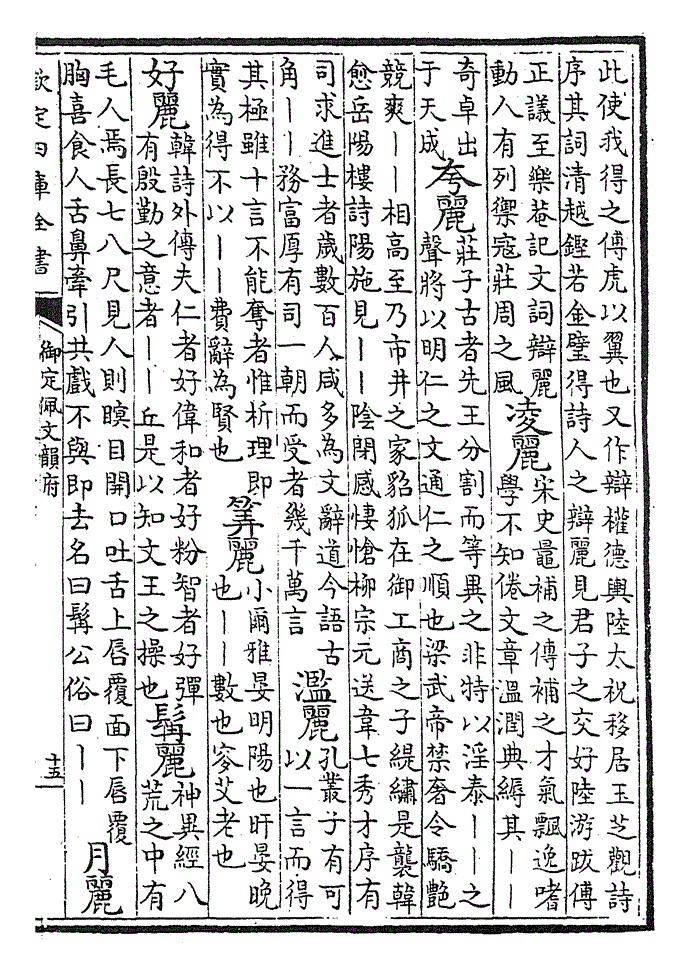 此使我得之傅虎以翼也又作辯權德輿陸太祝移居玉芝觀詩
序其詞清越鏗若金璧得詩人之辯麗見君子之交好陸游跋傅
正議至樂菴記文詞辯麗
動人有列禦寇莊周之風
凌麗
宋史鼂補之傳補之才氣飄逸嗜
學不知倦文章溫潤典縟其丨丨
奇卓出
于天成
夸麗
莊子古者先王分割而等異之非特以淫泰丨丨之
聲將以明仁之文通仁之順也梁武帝禁奢令驕艷
競爽丨丨相高至乃市井之家貂狐在御工商之子緹繡是襲韓
愈岳陽樓詩陽施見丨丨陰閉感悽愴柳宗元送韋七秀才序有
司求進士者歲數百人咸多為文辭道今語古
角丨丨務富厚有司一朝而受者幾千萬言
濫麗
孔叢子有可
以一言而得
其極雖十言不能奪者惟析理即
實為得不以丨丨費辭為賢也
筭麗
小爾雅晏明陽也旰晏晚
也丨丨數也艾老也
好麗
韓詩外傳夫仁者好偉和者好粉智者好彈
有殷勤之意者丨丨丘是以知文王之操也
髯麗
神異經八
荒之中有
毛人焉長七八尺見人則瞑目開口吐舌上唇覆面下唇覆
胸喜食人舌鼻牽引共戲不與即去名曰髯公俗曰丨丨
月麗
欽定四庫全書
御定佩文韻府
十五